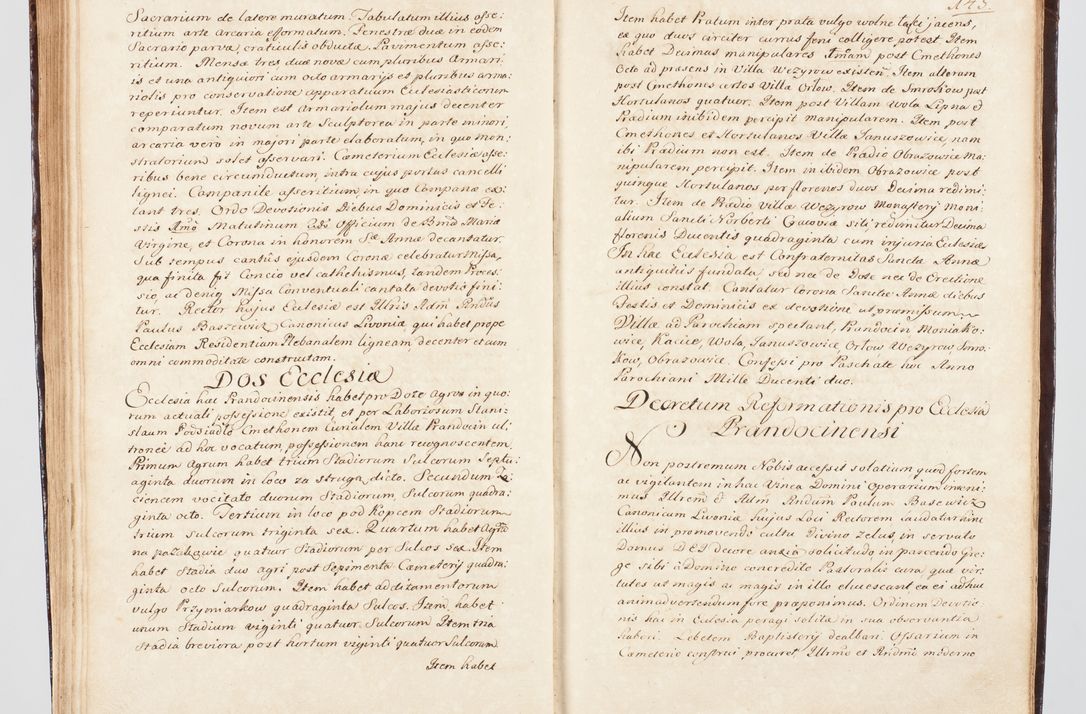 Sacrarium de latere muratum. Tabulatum illius asse:
ritium arte arcaria efformatum. Fenestræ duæ in eodem
Sacrario parvæ, craticulis obductæ. Pavimentum asse:
ritium. Mensæ tres duæ novæ cum pluribus Armari:
is et una antiquiori cum octo armarijs et pluribus arma:
riolis pro conservatione apparatuum Ecclesiasticorum
reperiuntur. Item est armariolum majus decenter
comparatum novum arte Sculptorea in parte minori,
arcaria verò in majori parte elaboratum, in quo mon:
stratorium solet asservari. Cæmeterium Ecclesiæ asse:
ribus bene circumductum, intra cujus portas cancelli
lignei. Campanile asseritium in quo Campanæ ex:
tant tres. Ordo Devotionis Diebus Dominicis et Fe:
stis Matutinum Officium de Bmã Maria
Virgine, et Corona in honorem Sæ Annæ decantatur.
Sub tempus cantûs ejusdem Coronæ celebratur Missa,
qua finita fit Concio vel cathehismus, tandem Proces:
sio, ac deniq Missa Conventuali cantata devotio fini:
tur. Rector hujus Ecclesiæ est Illris Adm Rndus
Paulus Baszewicz Canonicus Livoniæ, qui habet prope
Ecclesiam Residentiam Plebanalem ligneam decenter et cum
omni commoditate constructam.
DOS Ecclesiæ
Ecclesia hæc Prandocinensis habet pro Dote agros in quo:
rum actuali possessione existit, et per Laboriosum Stani:
slaum Podsiadło Cmethonem Curialem Villæ Prandocin ul:
tronee ad hoc vocatum, possessionem hanc recognoscentem,
Primum Agrum habet trium Stadiorum Sulcorum Septu:
aginta duorum in loco za strugą dicto. Secundum
ciencem vocitato duorum Stadiorum, Sulcorum quadra:
ginta octo. Tertium in loco pod Kopcem Stadiorum
trium Sulcorum triginta sex. Quartum habet Agrũ
na quatuor Stadiorum per Sulcos sex. Item
habet Stadia duo agri post Sepimenta Cæmeterij quadra:
ginta octo Sulcorum. Item habet additamentorum
vulgo Przymiarkow quadraginta Sulcos. Item habet
unum Stadium viginti quatuor Sulcorum Item tria
Stadia breviora post hortum viginti quatuor Sulcorum
Item habet
143.
Item habet Pratum inter prata vulgo wolne łąki jacens,
ex quo duos circiter currus fæni colligere potest. Item
habet Decimas manipulares post Cmethones
Octo ad præsens in Villa Wezyrow existen. Item alteram
post Cmethones certos Villæ Orłow. Item de Smrokow post
Hortulanos quatuor. Item post Villam Wola Lipna et
Prædium inibidem percipit manipularem. Item post
Cmethones et Hortulanos Villæ Januszowice, nam
ibi Prædium non est. Item de Prædio Obrazowice ma:
nipularem percipit. Item in ibidem Obrazowice post
quinque Hortulanos per florenos duos Decima redimi:
tur. Item de Prædio Villæ Wezyrow Monasterij Moni:
alium Sancti Norberti Cracoviæ siti redimitur Decima
florenis Ducentis quadraginta cum injuria Ecclesiæ
In hac Ecclesia est Confraternitas Sanctæ Annæ
antiquitùs fundata, sed nec de Dote nec de Erectione
illius constat. Cantatur Corona Sanctæ Annæ diebus
Festis et Dominicis ex devotione ut præmissum.
Villæ ad Parochiam spectant, Prandocin Moniako:
wice, Kacice, Wola, Januszowice, Orłow Wezyrow Smro:
kow, Obrazowice. Confessi pro Paschate hoc Anno
Parochiani Mille Ducenti duo.
Decretum Reformationis pro Ecclesia
Prandocinensi
Non postremum Nobis accessit solatium quod fortem
ac vigilantem in hac Vinea Domini Operarium inveni:
mus Illrem et Adm Rndum Paulum Basewicz
Canonicum Livoniæ hujus Loci Rectorem laudatur hinc
illius in promovendo cultu Divino zelus, in servato
Domus DEI decore anxia solicitudo in pascendo Gre:
ge sibi à Domino concredito Pastoralis cura quæ vir:
tutes ut magis ac magis in illo elucescant ea ei adhuc
animadvertendum fore præponimus. Ordinem Devotio:
nis hac in Ecclesia peragi solitæ in sua observantia
haberi. Lebetem Baptisterij dealbari. Ossarium in
Cæmeterio construi procuret Illrmo et Rndmo moderno